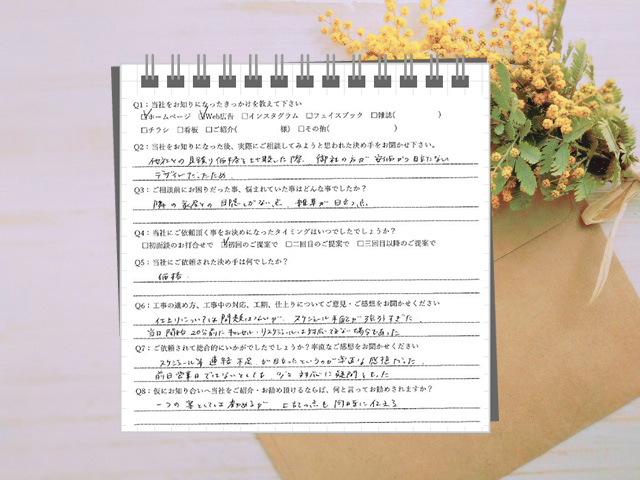 Q1：当社をお知りになったきっかけを教えて下さい
☑ホームページ ☑Web広告 □インスタグラム □フェイスブック □雑誌( )
□チラシ □看板 □ご紹介( 様) □その他( )
Q2：当社をお知りになった後、実際にご相談してみようと思われた決め手をお聞かせ下さい。
他社との見積り価格を比較した際、御社の方が安価かつ
デザインだったため
Q3：ご相談前にお困りだった事、悩まれていた事はどんな事でしたか？
隣の家屋との目隠しがない点、雑草が目立つ点
Q4：当社にご依頼頂く事をお決めになったタイミングはいつでしたでしょうか？
□初面談のお打合せで ☑初回のご提案で □二回目のご提案で □三回目以降のご提案で
Q5：当社にご依頼された決め手は何でしたか？
価格.
Q6：工事の進め方、工事中の対応、工期、仕上りについてご意見・ご感想をお聞かせください
仕上りについては問題はないが、スケジュール手配が強引すぎた.
当日開始20分前にキャンセル・リスケジュールは対応できない場合もあった
Q7：ご依頼されて総合的にいかがでしたでしょうか？率直なご感想をお聞かせください
スケジュール等 連絡不足が目立ったというのが率直な感想だった.
前日営業日ではないとしても 対応に疑問をもった
Q8：仮にお知り合いへ当社をご紹介・お勧め頂けるならば、何と言ってお勧めされますか？
一つの案としては勧めるが、上記の点も同時に伝える